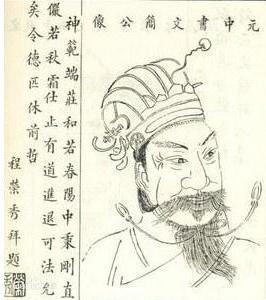 元中書文簡公像
神範端莊和若春陽中秉剛直
儼若秋霜仕止有道進退可法允
矣令德匹休前哲
程榮秀拜題